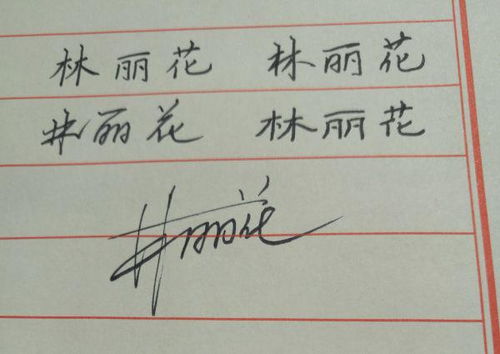 林丽花 林丽花
林丽花 林丽花
林丽花